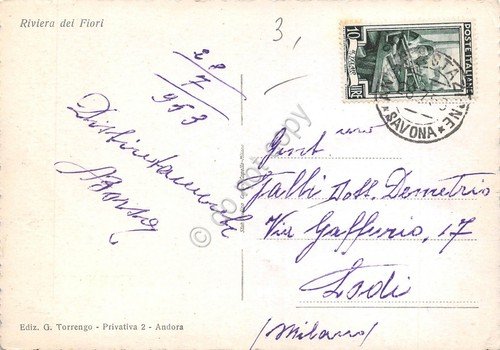 Riviera dei Fiori
3,
28
7
953
Distintamente
POSTE ITALIANE
LIRE 10
SAVONA
Gent.
Galbi Dott. Demetrio
Via Gaffurio, 17
Lodi
(Milano)
Ediz. G. Torrengo - Privativa 2 - Andora